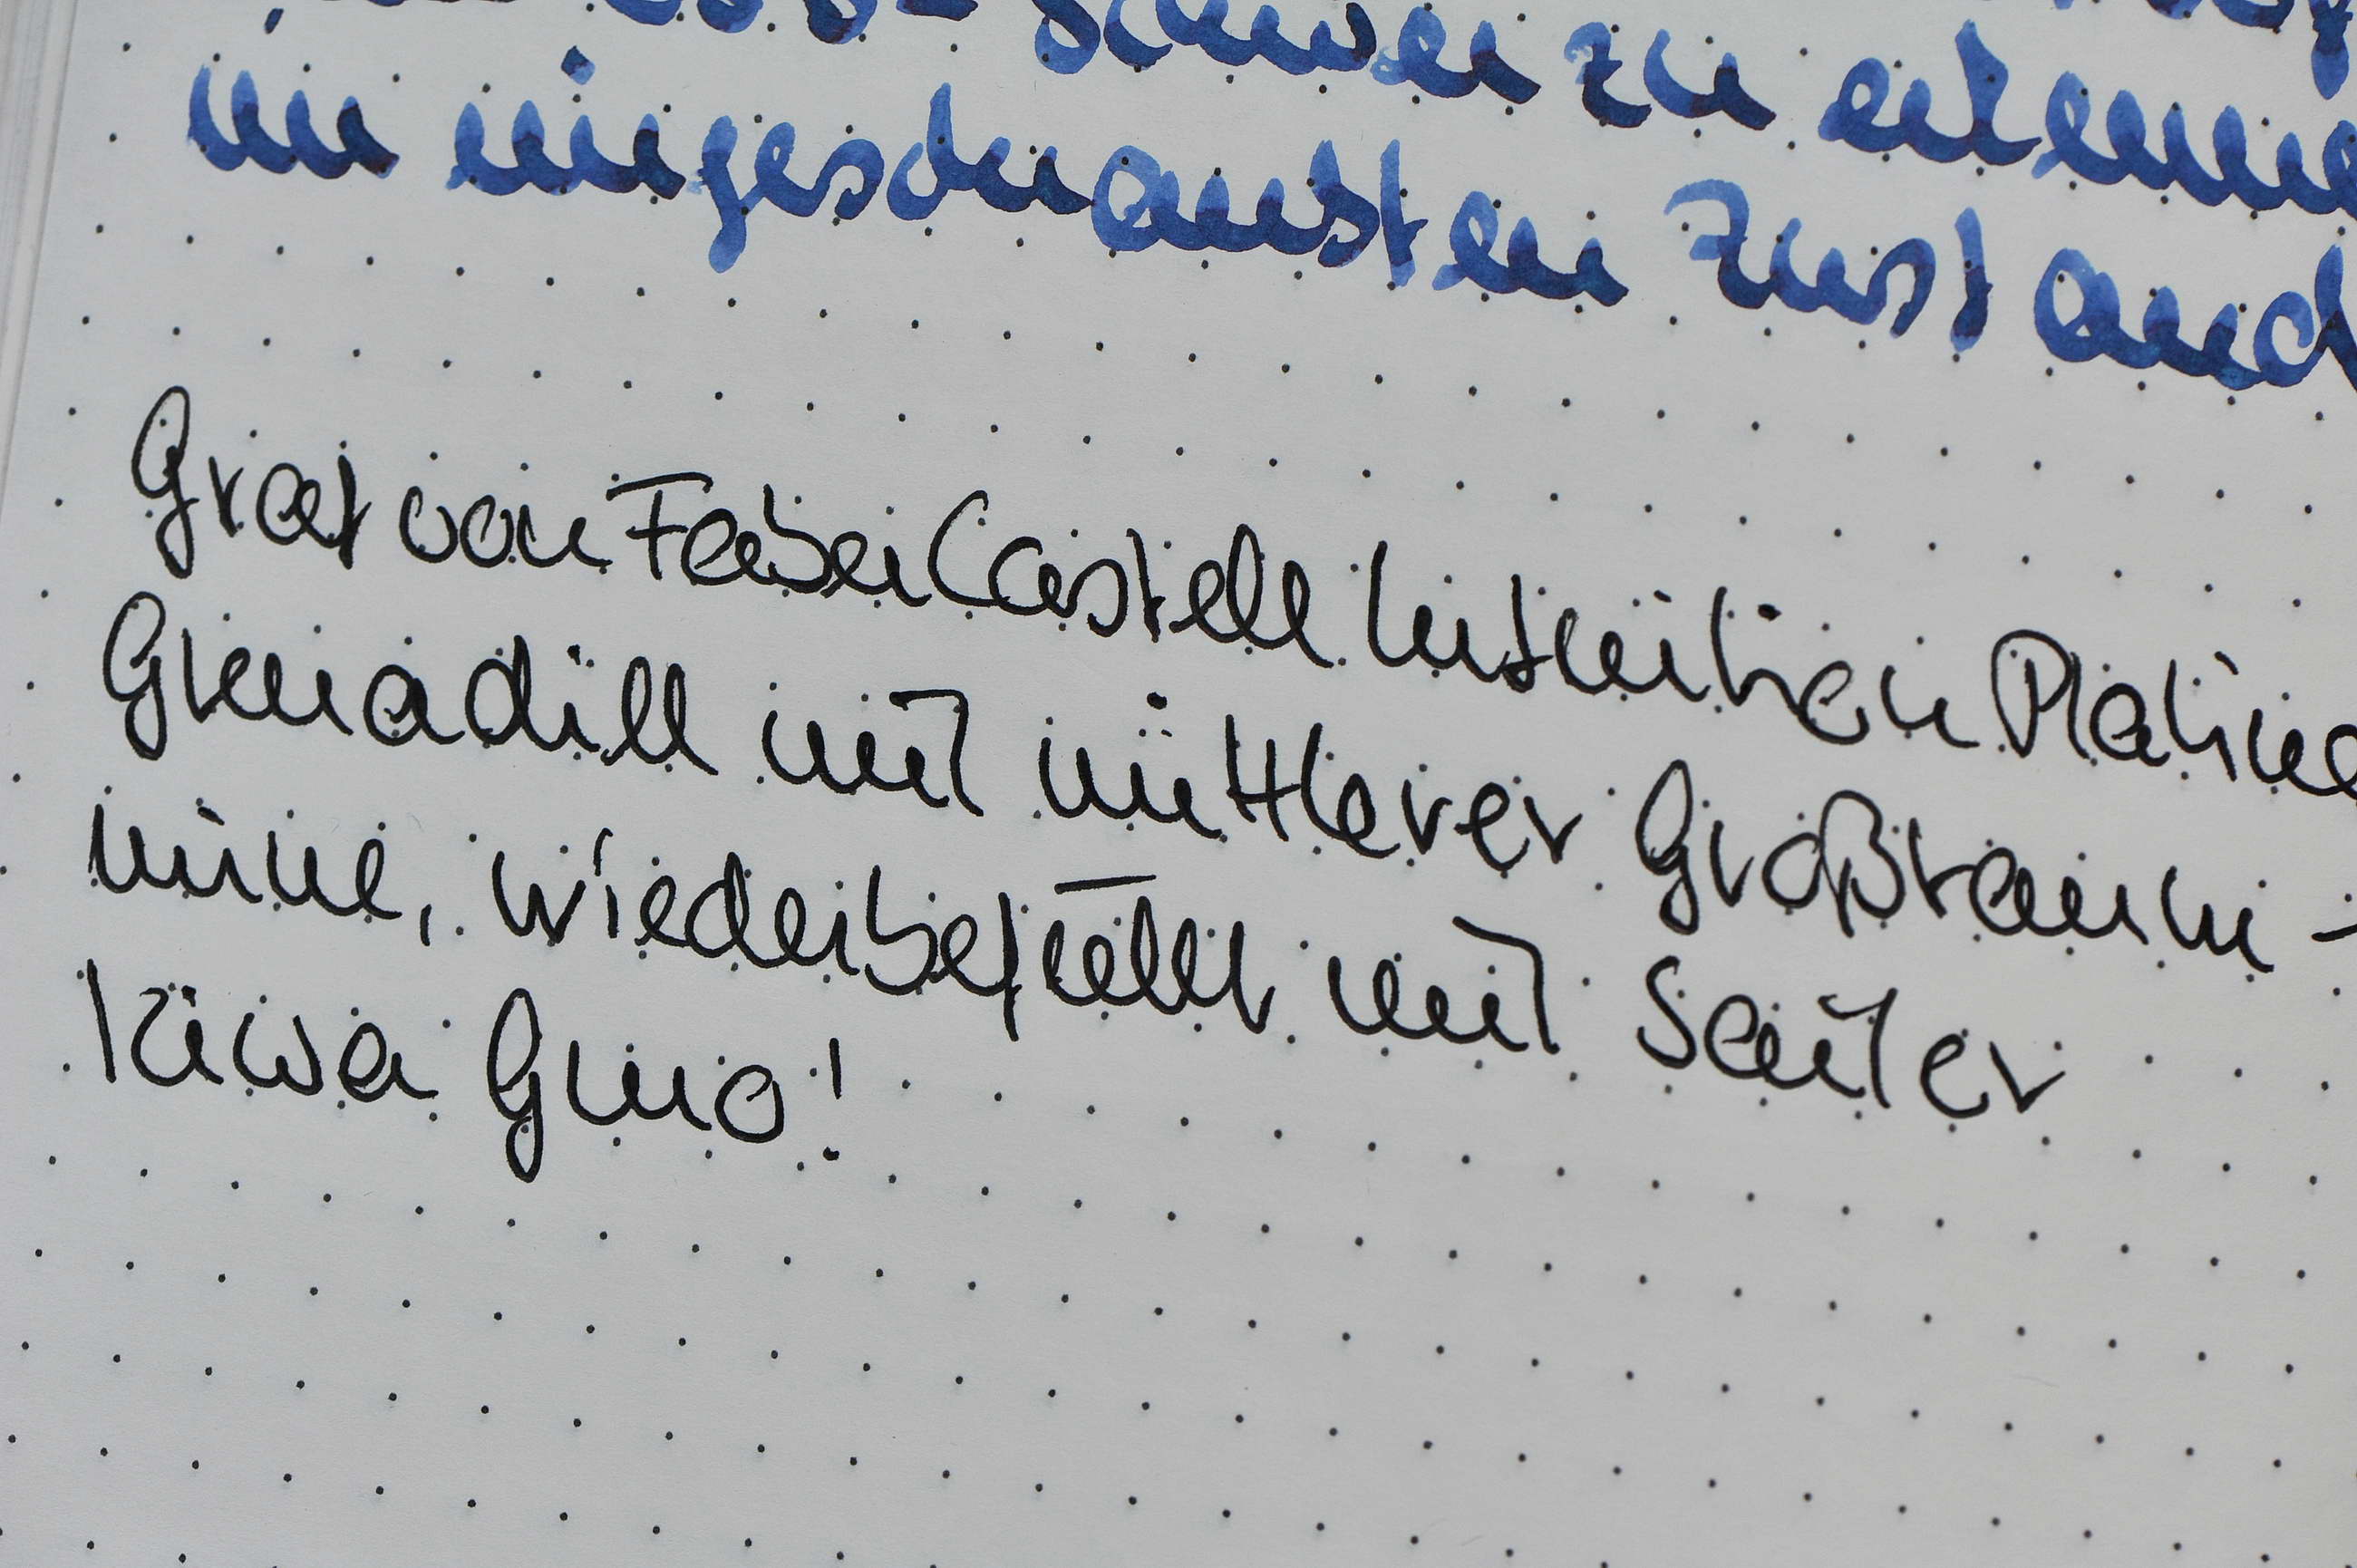 schwer zu erkennen
im eingeschraubten Zustand
Graf von Faber Castell Intuition Platino
Grenadill mit mittlerer Großraum-
mine, wiederbefüllt mit Sailor
Kiwa Guro!